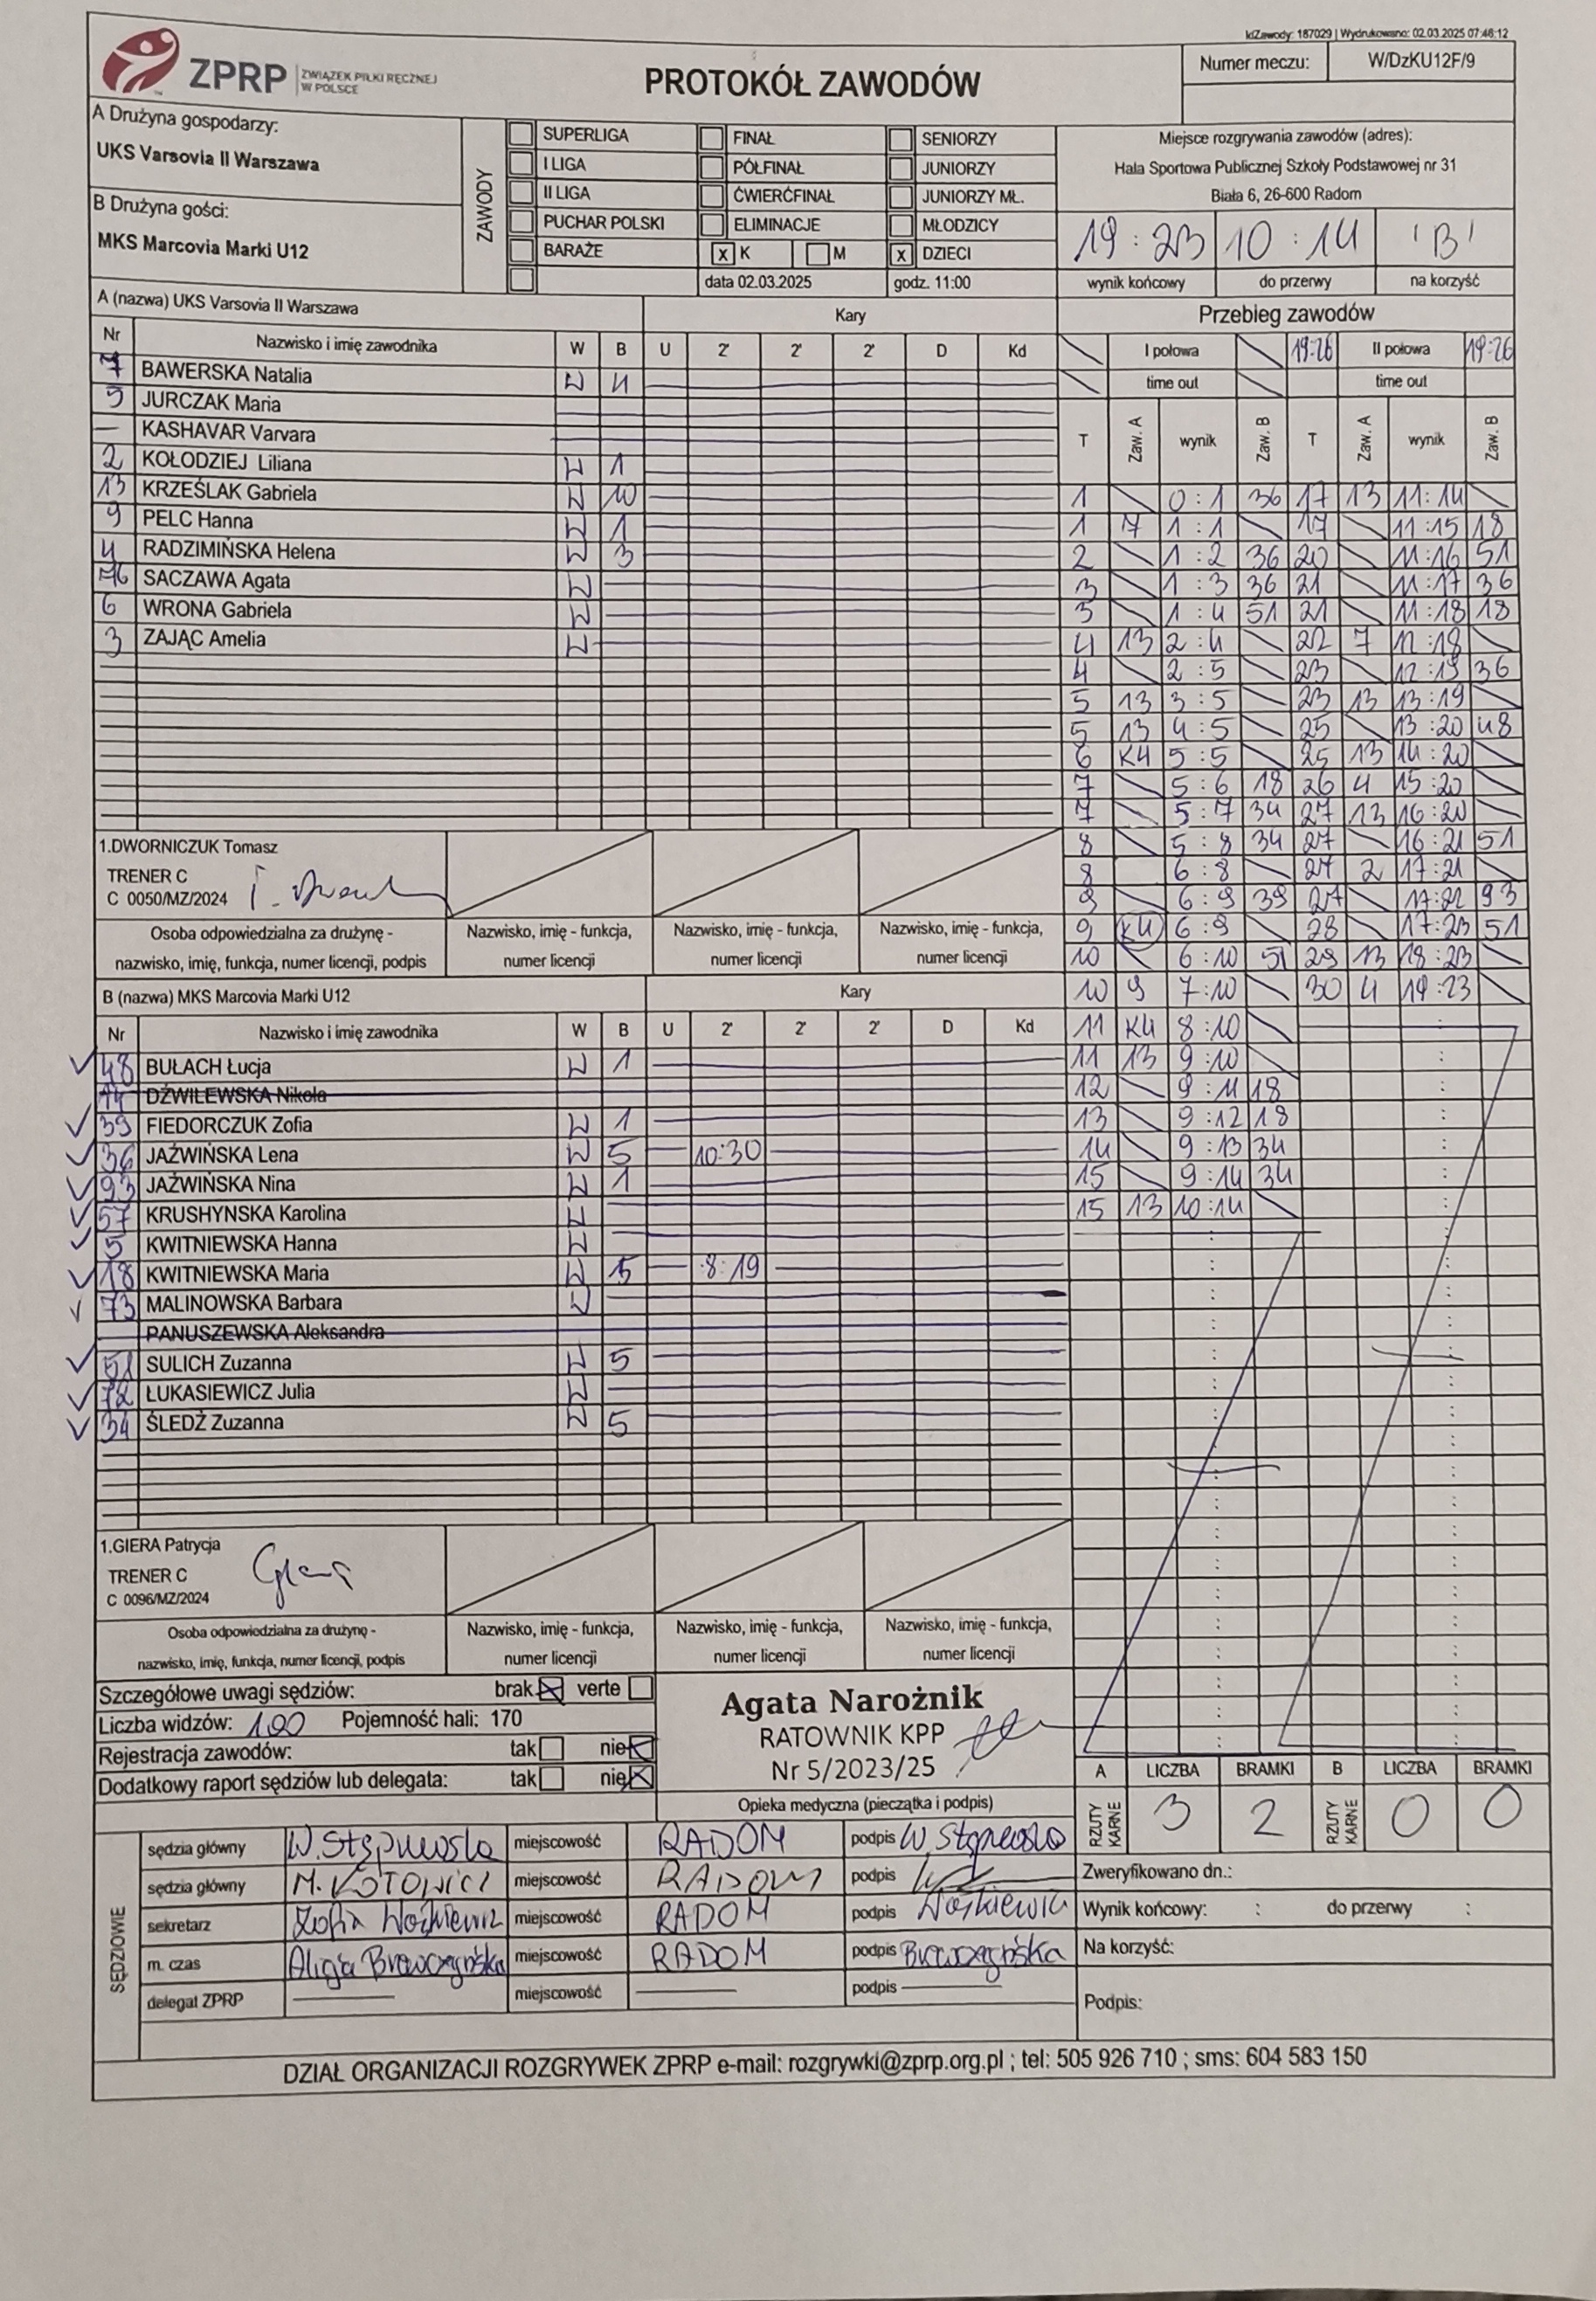 idZawody: 187029 | Wydrukowano: 02.03.2025 07:46:12
ZPRP ZWIĄZEK PIŁKI RĘCZNEJ W POLSCE
PROTOKÓŁ ZAWODÓW
Numer meczu: W/DzKU12F/9
A Drużyna gospodarzy:
UKS Varsovia II Warszawa
B Drużyna gości:
MKS Marcovia Marki U12
ZAWODY
SUPERLIGA FINAŁ SENIORZY
I LIGA PÓŁFINAŁ JUNIORZY
II LIGA ĆWIERĆFINAŁ JUNIORZY MŁ.
PUCHAR POLSKI ELIMINACJE MŁODZICY
BARAŻE x K M x DZIECI
data 02.03.2025 godz. 11:00
Miejsce rozgrywania zawodów (adres):
Hala Sportowa Publicznej Szkoły Podstawowej nr 31
Biała 6, 26-600 Radom
19:23 10:14 'B'
wynik końcowy do przerwy na korzyść
A (nazwa) UKS Varsovia II Warszawa Kary
Nr Nazwisko i imię zawodnika W B U 2' 2' 2' D Kd
7 BAWERSKA Natalia W 4
5 JURCZAK Maria
— KASHAVAR Varvara
2 KOŁODZIEJ Liliana W 1
13 KRZEŚLAK Gabriela W 10
9 PELC Hanna W 1
4 RADZIMIŃSKA Helena W 3
76 SACZAWA Agata W
6 WRONA Gabriela W
3 ZAJĄC Amelia W
1.DWORNICZUK Tomasz
TRENER C
C 0050/MZ/2024
Osoba odpowiedzialna za drużynę -
nazwisko, imię, funkcja, numer licencji, podpis
Nazwisko, imię - funkcja, numer licencji
Nazwisko, imię - funkcja, numer licencji
Nazwisko, imię - funkcja, numer licencji
B (nazwa) MKS Marcovia Marki U12 Kary
Nr Nazwisko i imię zawodnika W B U 2' 2' 2' D Kd
48 BUŁACH Łucja W 1
DŹWILEWSKA Nikola
39 FIEDORCZUK Zofia W 1
36 JAŹWIŃSKA Lena W 5 10:30
93 JAŹWIŃSKA Nina W 1
57 KRUSHYNSKA Karolina W
5 KWITNIEWSKA Hanna W
18 KWITNIEWSKA Maria W 5 8:19
73 MALINOWSKA Barbara W
PANUSZEWSKA Aleksandra
51 SULICH Zuzanna W 5
72 ŁUKASIEWICZ Julia W
34 ŚLEDŹ Zuzanna W 5
1.GIERA Patrycja
TRENER C
C 0096/MZ/2024
Osoba odpowiedzialna za drużynę -
nazwisko, imię, funkcja, numer licencji, podpis
Nazwisko, imię - funkcja, numer licencji
Nazwisko, imię - funkcja, numer licencji
Nazwisko, imię - funkcja, numer licencji
Przebieg zawodów
I połowa 19:26 II połowa 19:26
time out time out
T Zaw. A wynik Zaw. B T Zaw. A wynik Zaw. B
1 0:1 36 17 13 11:14
1 7 1:1 17 11:15 18
2 1:2 36 20 11:16 51
3 1:3 36 21 11:17 36
3 1:4 51 21 11:18 18
4 13 2:4 22 7 12:18
4 2:5 23 12:19 36
5 13 3:5 23 13 13:19
5 13 4:5 25 13:20 48
6 K4 5:5 25 13 14:20
7 5:6 18 26 4 15:20
7 5:7 34 27 13 16:20
8 5:8 34 27 16:21 51
8 6:8 27 2 17:21
9 6:9 39 27 17:22 93
9 K4 6:9 28 17:23 51
10 6:10 51 29 13 18:23
10 9 7:10 30 4 19:23
11 K4 8:10
11 13 9:10
12 9:11 18
13 9:12 18
14 9:13 34
15 9:14 34
15 13 10:14
Szczegółowe uwagi sędziów: brak verte
Liczba widzów: 100 Pojemność hali: 170
Rejestracja zawodów: tak nie
Dodatkowy raport sędziów lub delegata: tak nie
Agata Narożnik
RATOWNIK KPP
Nr 5/2023/25
Opieka medyczna (pieczątka i podpis)
A LICZBA BRAMKI B LICZBA BRAMKI
RZUTY KARNE 3 2 RZUTY KARNE 0 0
SĘDZIOWIE
sędzia główny miejscowość RADOM podpis
sędzia główny miejscowość RADOM podpis
sekretarz Zofia miejscowość RADOM podpis
m. czas Alicja miejscowość RADOM podpis
delegat ZPRP miejscowość podpis
Zweryfikowano dn.:
Wynik końcowy: : do przerwy :
Na korzyść:
Podpis:
DZIAŁ ORGANIZACJI ROZGRYWEK ZPRP e-mail: rozgrywki@zprp.org.pl ; tel: 505 926 710 ; sms: 604 583 150